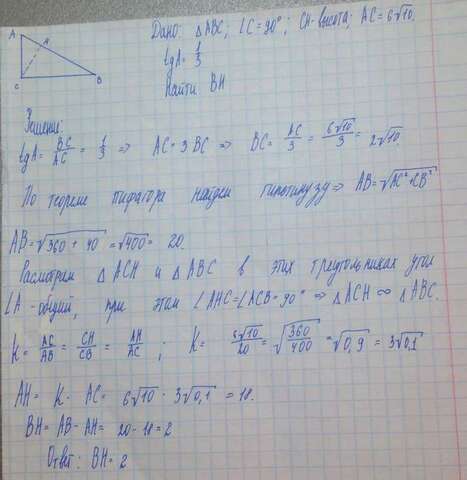 A
H
C
B
Дано: △ABC; ∠C=90°; CH-высота; AC=6√10.
tgA=1/3
Найти: BH
Решение:
tgA=BC/AC=1/3 ⇒ AC=3BC ⇒ BC=AC/3=6√10/3=2√10.
По теореме пифагора найдем гипотинузу ⇒ AB=√AC²+CB²
AB=√360+40=√400=20.
Расмотрем △ACH и △ABC в этих треугольниках угол
∠A-общий, при этом ∠AHC=∠ACB=90° ⇒ △ACH ∞ △ABC.
K=AC/AB=CH/CB=AH/AC; K=6√10/20=√360/400=√0,9=3√0,1
AH=K·AC=6√10·3√0,1=18.
BH=AB-AH=20-18=2
Ответ: BH=2